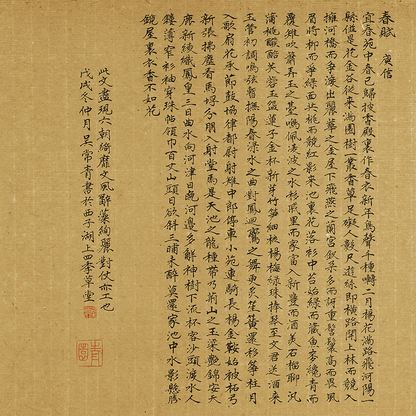 春賦 庾信
宜春苑中春已歸披香殿裏作春衣新年鳥聲千種囀二月楊花滿路飛河陽一
縣併是花金谷從來滿園樹一叢香草足礙人數尺遊絲即橫路開上林而競入
擁河橋而爭渡出麗華之金屋下飛燕之蘭宮釵朵多而訝重髻鬟高而畏風
眉將柳而爭綠面共桃而競紅影來池裏花落衫中苔始綠而藏魚麥纔青而
覆雉吹簫弄玉之臺鳴佩凌波之水移戚里而家富入新豐而酒美石榴聊汎
蒲桃醱醅芙蓉玉碗蓮子金杯新芽竹筍細核楊梅綠珠捧琴至文君送酒來
玉管初調鳴絃暫撫陽春淥水之曲對鳳迴鸞之舞更炙笙簧還移箏柱月
入歌扇花承節鼓協律都尉射雉中郎停車小苑連騎長楊金鞍始被柘弓
新張拂塵看馬埒分朋入射堂馬是天池之龍種帶乃荊山之玉梁艷錦安天
鹿新綾織鳳皇三日曲水向河津日晚河邊多解神樹下流杯客沙頭渡水人
鏤薄窄衫袖穿珠帖領巾百丈山頭日欲斜三晡未醉莫還家池中水影懸勝
鏡屋裏衣香不如花
此文盡現六朝綺靡文風辭藻絢麗對仗亦工也
戊戌冬仲月吴常青書於西子湖上四季草堂